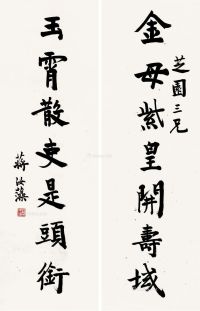 芝園三兄
金母紫皇開壽域
玉霄散吏是頭銜
蔣汝藻